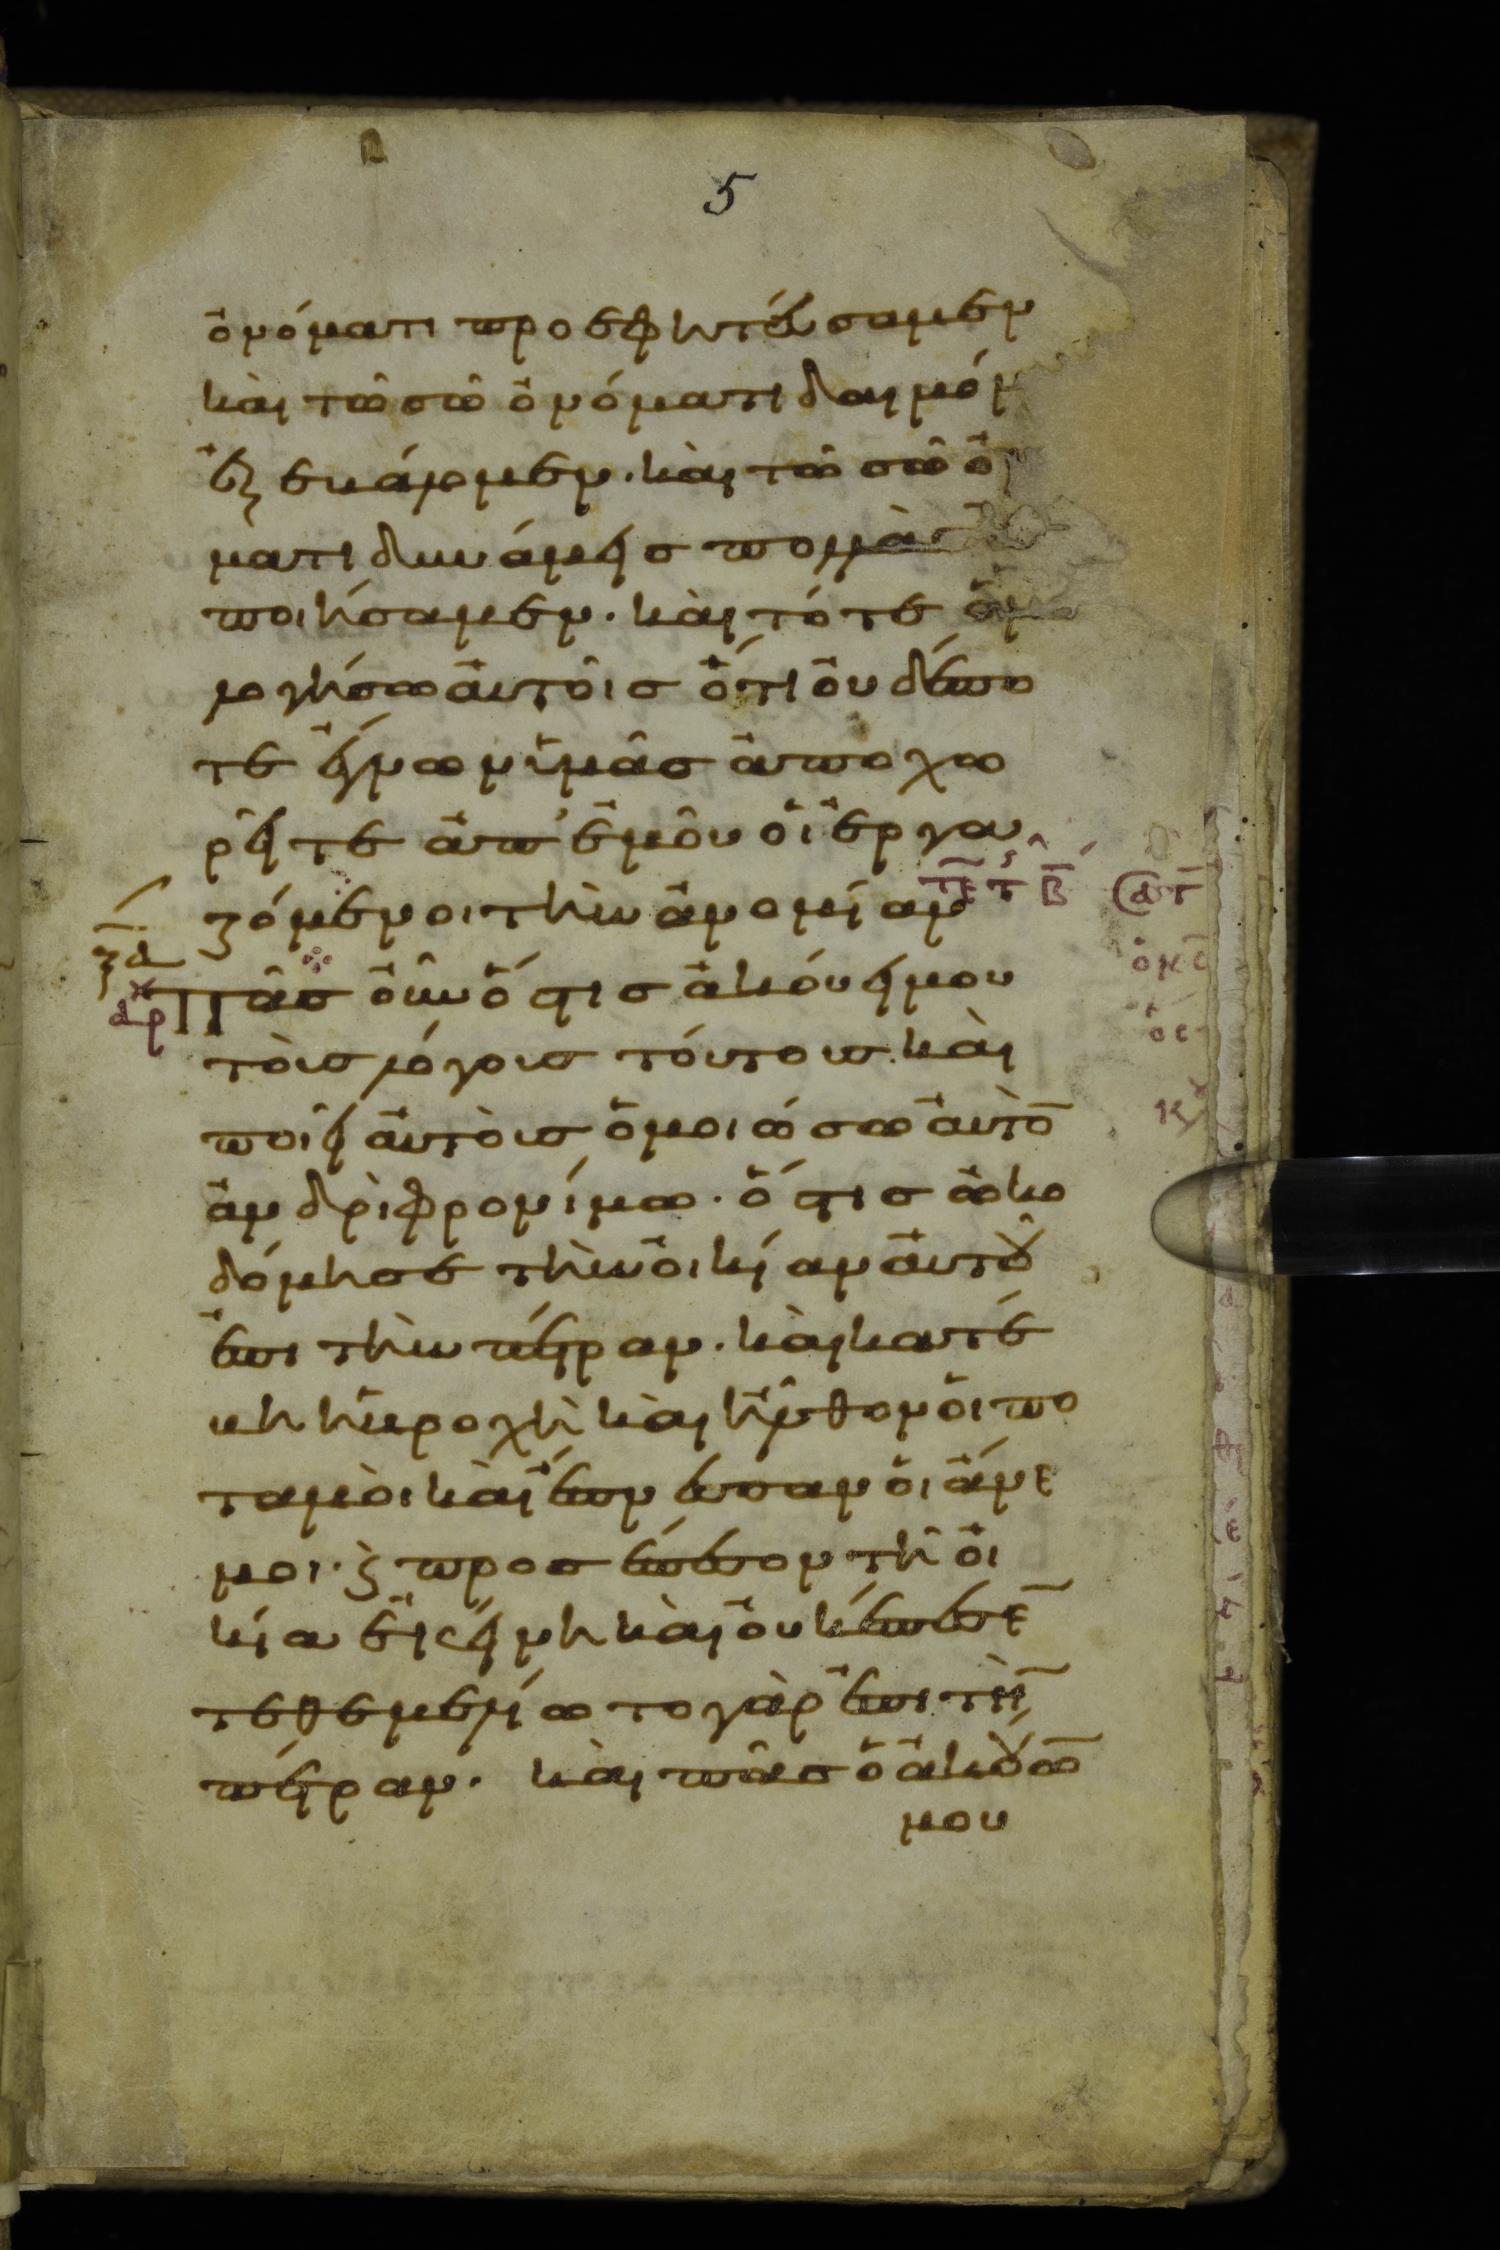 5
ὀνόματι προεφητεύσαμεν
καὶ τῶ σῶ ὀνόματι δαιμόν
ἐξεκάλομεν· καὶ τῶ σῶ ὀν
ματι δυνάμεις πολλὰς
ποιήσαμεν· καὶ τότε ὁμ
λογήσω αὐτοῖς ὅτι οὐδέπο
τε ἔγνων ὑμᾶς ἀποχω
ρεῖτε ἀπ' ἐμοῦ οἱ ἐργα
ζόμενοι τὴν ἀνομίαν
Πᾶς οὖν ὅστις ἀκούει μου
τοὺς λόγους τούτους· καὶ
ποιεῖ αὐτοὺς ὁμοιώσω αὐτὸ
ἀνδρὶ φρονίμω· ὅστις ὠκο
δόμησε τὴν οἰκίαν αὐτοῦ
ἐπι τὴν πέτραν· καὶ κατέ
βη ἡ βροχὴ καὶ ἦλθον οἱ πο
ταμοὶ καὶ ἔπνευσαν οἱ ἄνε
μοι· ϗ προσέπεσον τῆ οἰ
κία ἐκείνη καὶ οὐκ ἔπεσε
τεθεμελίωτο γὰρ ἐπι τὴ
πέτραν· καὶ πᾶς ὁ ἀκούω
μου